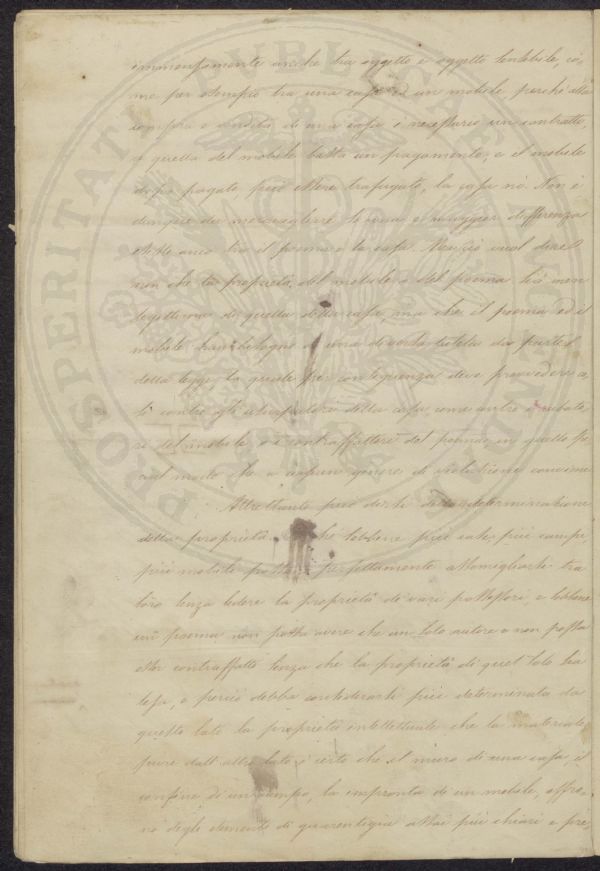 immensamente anche tra oggetto e oggetto tendibile, co,
me per esempio tra una casa ed un mobile perchè alla
compra e vendita di una casa è necessario un contratto,
a quella del mobile basta un pagamento, e il mobile
dopo pagato può essere trafugato, la casa nò. Non è
dunque da meravigliare se una maggior differenza
esiste anco tra il poema e la casa. Ma ciò vuol dire
non che la proprietà del mobile e del poema sia men
legittima di quella della casa, ma che il poema ed il
mobile han bisogno di una diversa tutela da parte
della legge, la quale per conseguenza deve provvedere
contro gli usurpatori della casa, come contro i rubato,
ri del mobile, o i contraffattori del poema in quello pe
cial modo che a ciascun genere di violazione conviene
Altrettanto può dirsi della determinazione
della proprietà. che sebbene più case, più campi
più mobili perfettamente assomigliarsi tra
loro senza ledere la proprietà di vari possessori, e sebbene
un poema non possa avere che un solo autore e non possa
esser contraffatto senza che la proprietà di quel solo sia
lesa, e perciò debba considerarsi più determinata da
questo lato la proprietà intellettuale che la materiale,
pure dall'altro lato è certo che il muro di una casa, il
confine di un campo, la impronta di un mobile, offro,
no degli elementi di guarentigia assai più chiari e pre,
PROSPERITATI PVBLICAE AVGENDAE